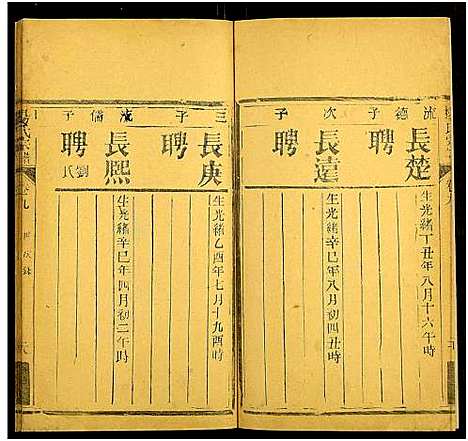 流德子
長楚
聘
生光緒丁丑年八月十六午時
次子
長遠
聘
生光緒辛巳年八月初四丑時
三子
長庚
聘
生光緒乙酉年七月十九酉時
流儒子
長熙
聘劉氏
生光緒辛巳年四月初二午時
氏宗譜
卷九